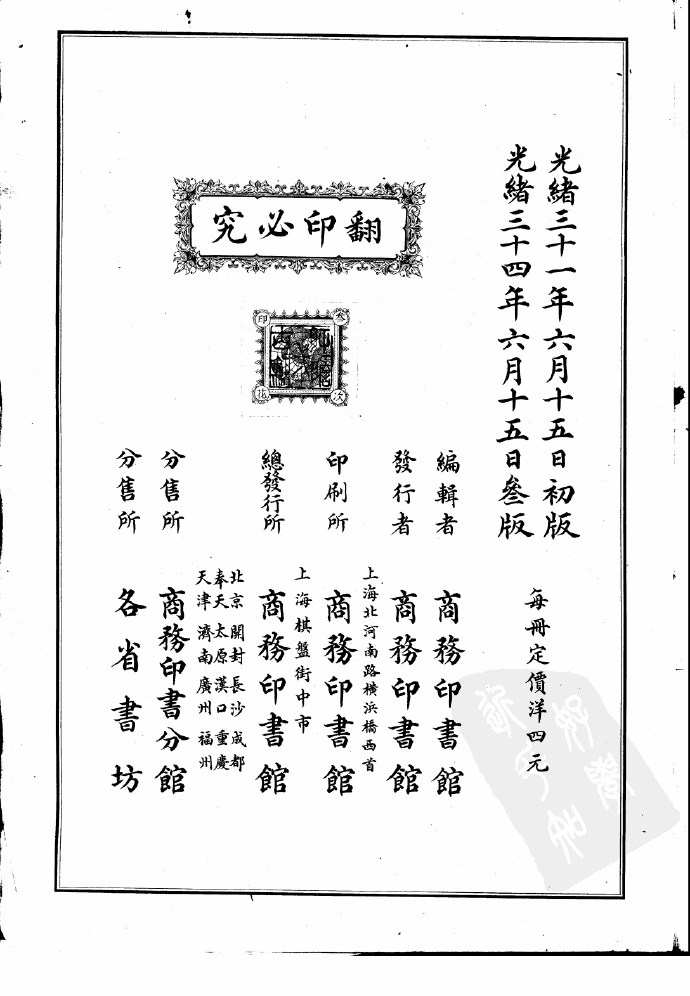 光緒三十一年六月十五日初版
光緒三十四年六月十五日叄版
每冊定價洋四元
翻印必究
叄次印花
編輯者 商務印書館
發行者 商務印書館
上海北河南路橫浜橋西首
印刷所 商務印書館
上海棋盤街中市
總發行所 商務印書館
北京 開封 長沙 成都
奉天 太原 漢口 重慶
天津 濟南 廣州 福州
分售所 商務印書分館
分售所 各省書坊